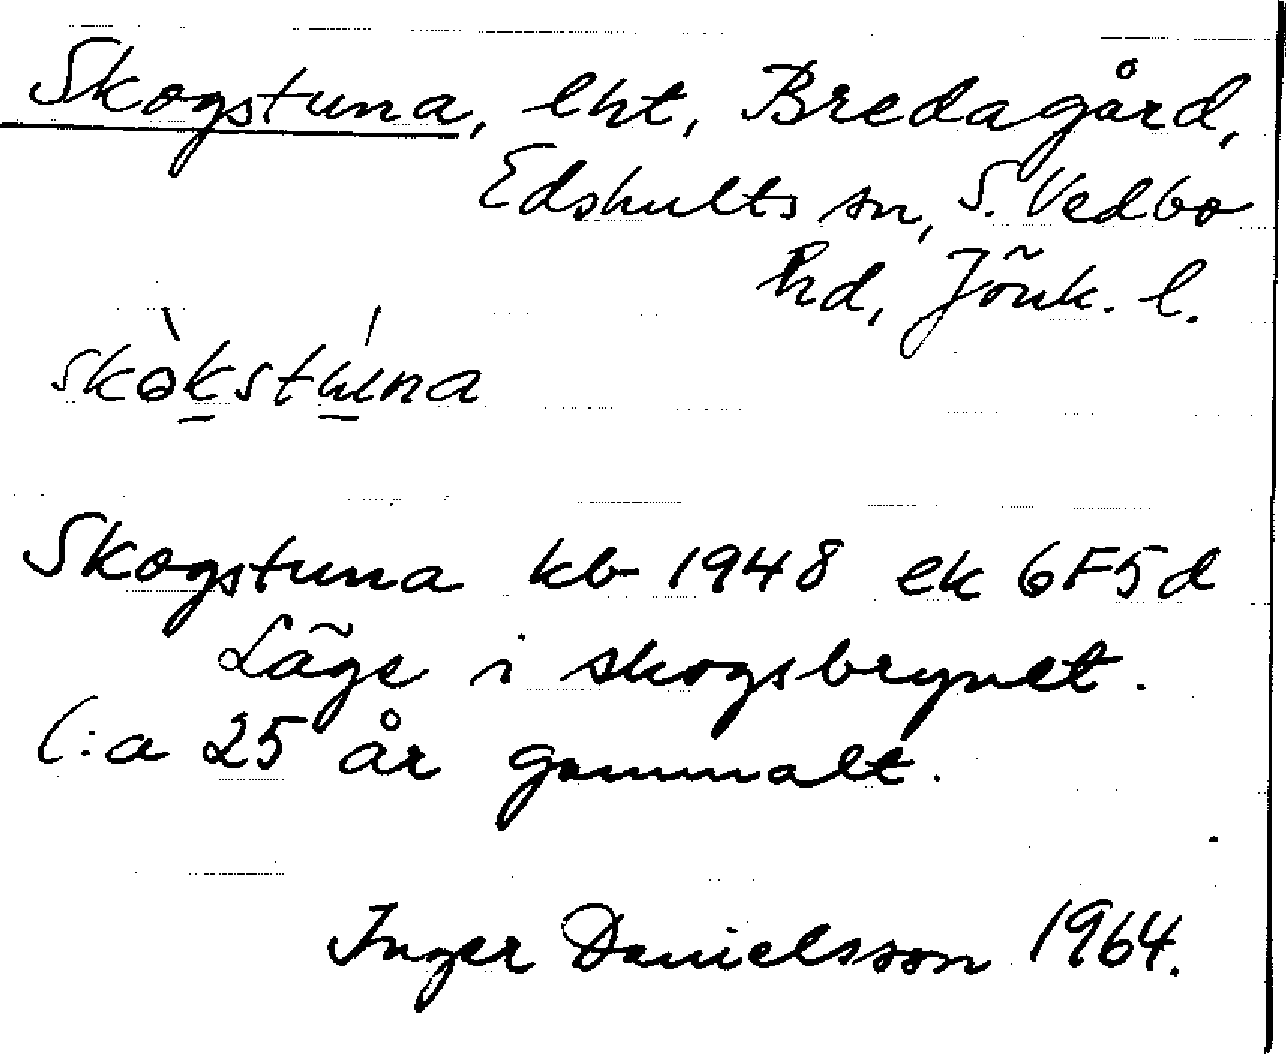 Skogstuna, lht, Bredagård,
Edshults sn, S. Vedbo
hd, Jönk. l.
skòkstúna
Skogstuna kb 1948 ek 6F5d
Läge i skogsbrynet.
C:a 25 år gammalt.
Inger Danielsson 1964.